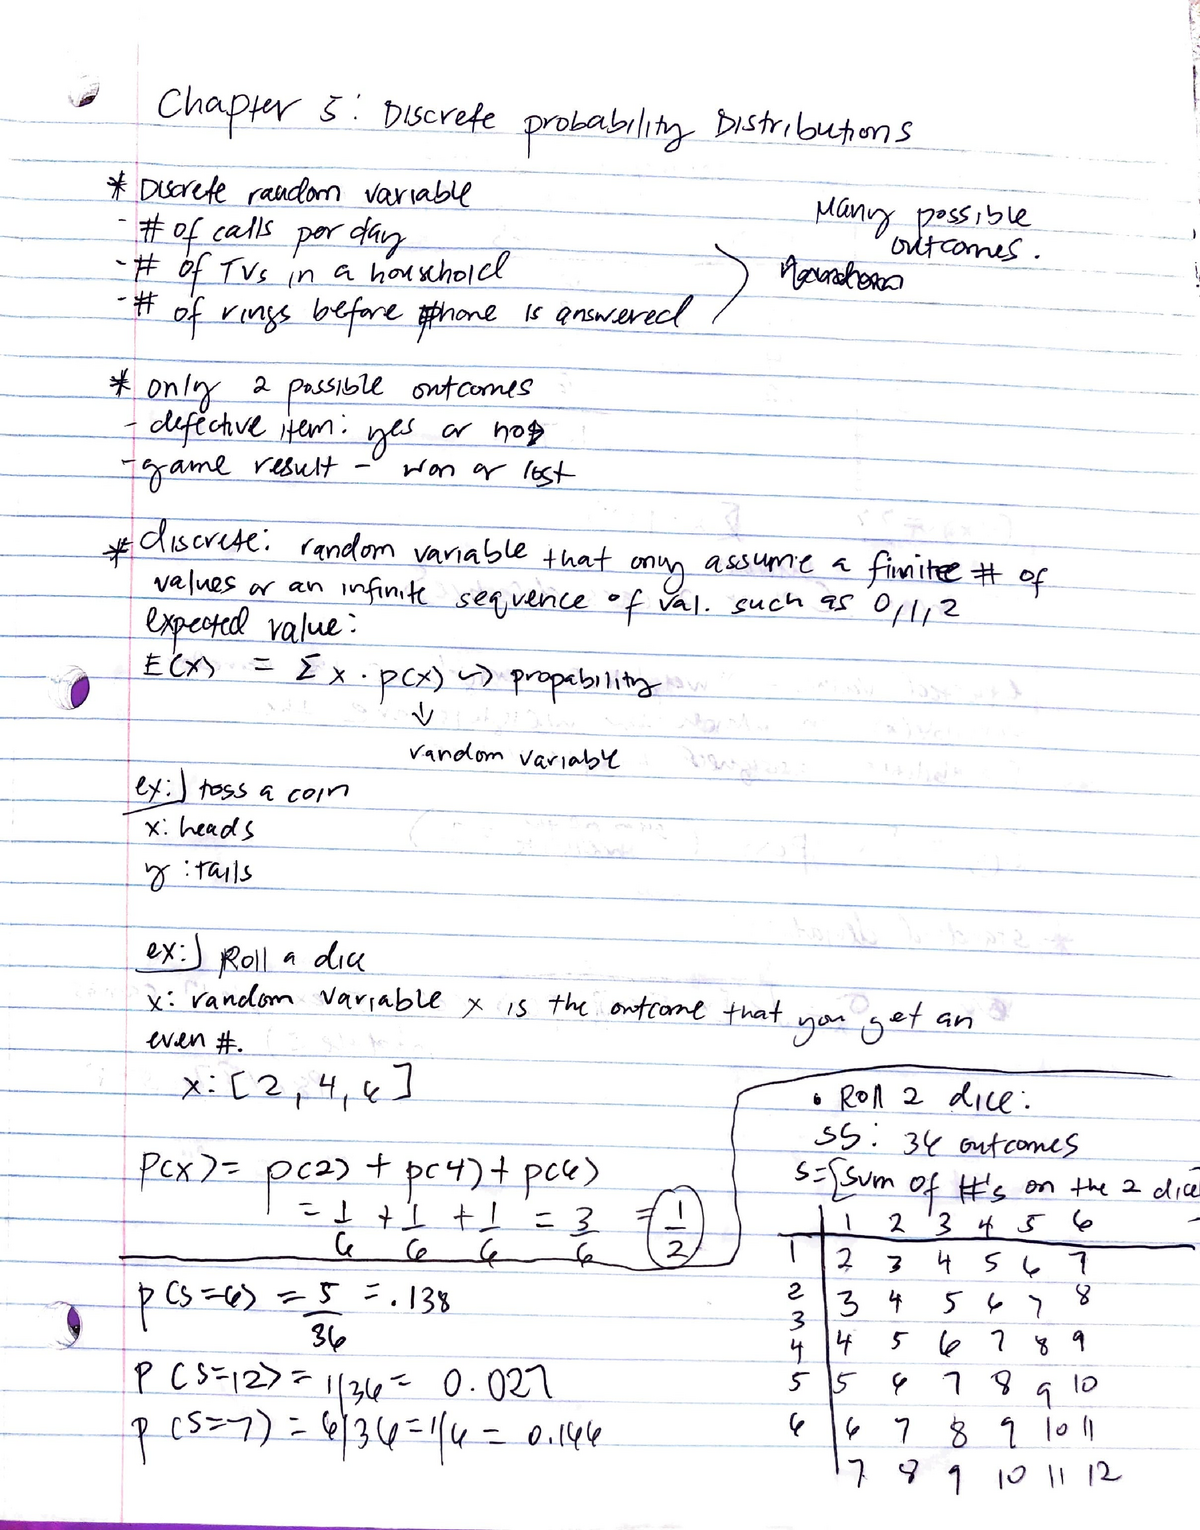 Chapter 5: Discrete probability Distributions
* Discrete random variable
- # of calls per day
- # of TVs in a household
- # of rings before phone is answered
Many possible
outcomes.
* only 2 possible outcomes
- defective item: yes or no
- game result - won or lost
* discrete: random variable that only assume a finite # of
values or an infinite sequence of val. such as 0,1,2
expected value:
E(x) = Σ x · p(x) ↪ propability
↓
random variable
ex:) toss a coin
x: heads
y: tails
ex:) Roll a dice
x: random variable x is the outcome that you get an
even #.
x: [2, 4, 6]
P(x) = p(2) + p(4) + p(6)
= 1/6 + 1/6 + 1/6 = 3/6 = 1/2
p(s=6) = 5/36 = .138
P(S=12) = 1/36 = 0.027
p(S=7) = 6/36 = 1/6 = 0.166
• Roll 2 dice:
SS: 36 outcomes
S={Sum of #'s on the 2 dice
1 2 3 4 5 6
1 2 3 4 5 6 7
2 3 4 5 6 7 8
3 4 4 5 6 7 8 9
5 5 6 7 8 9 10
6 6 7 8 9 10 11
7 8 9 10 11 12